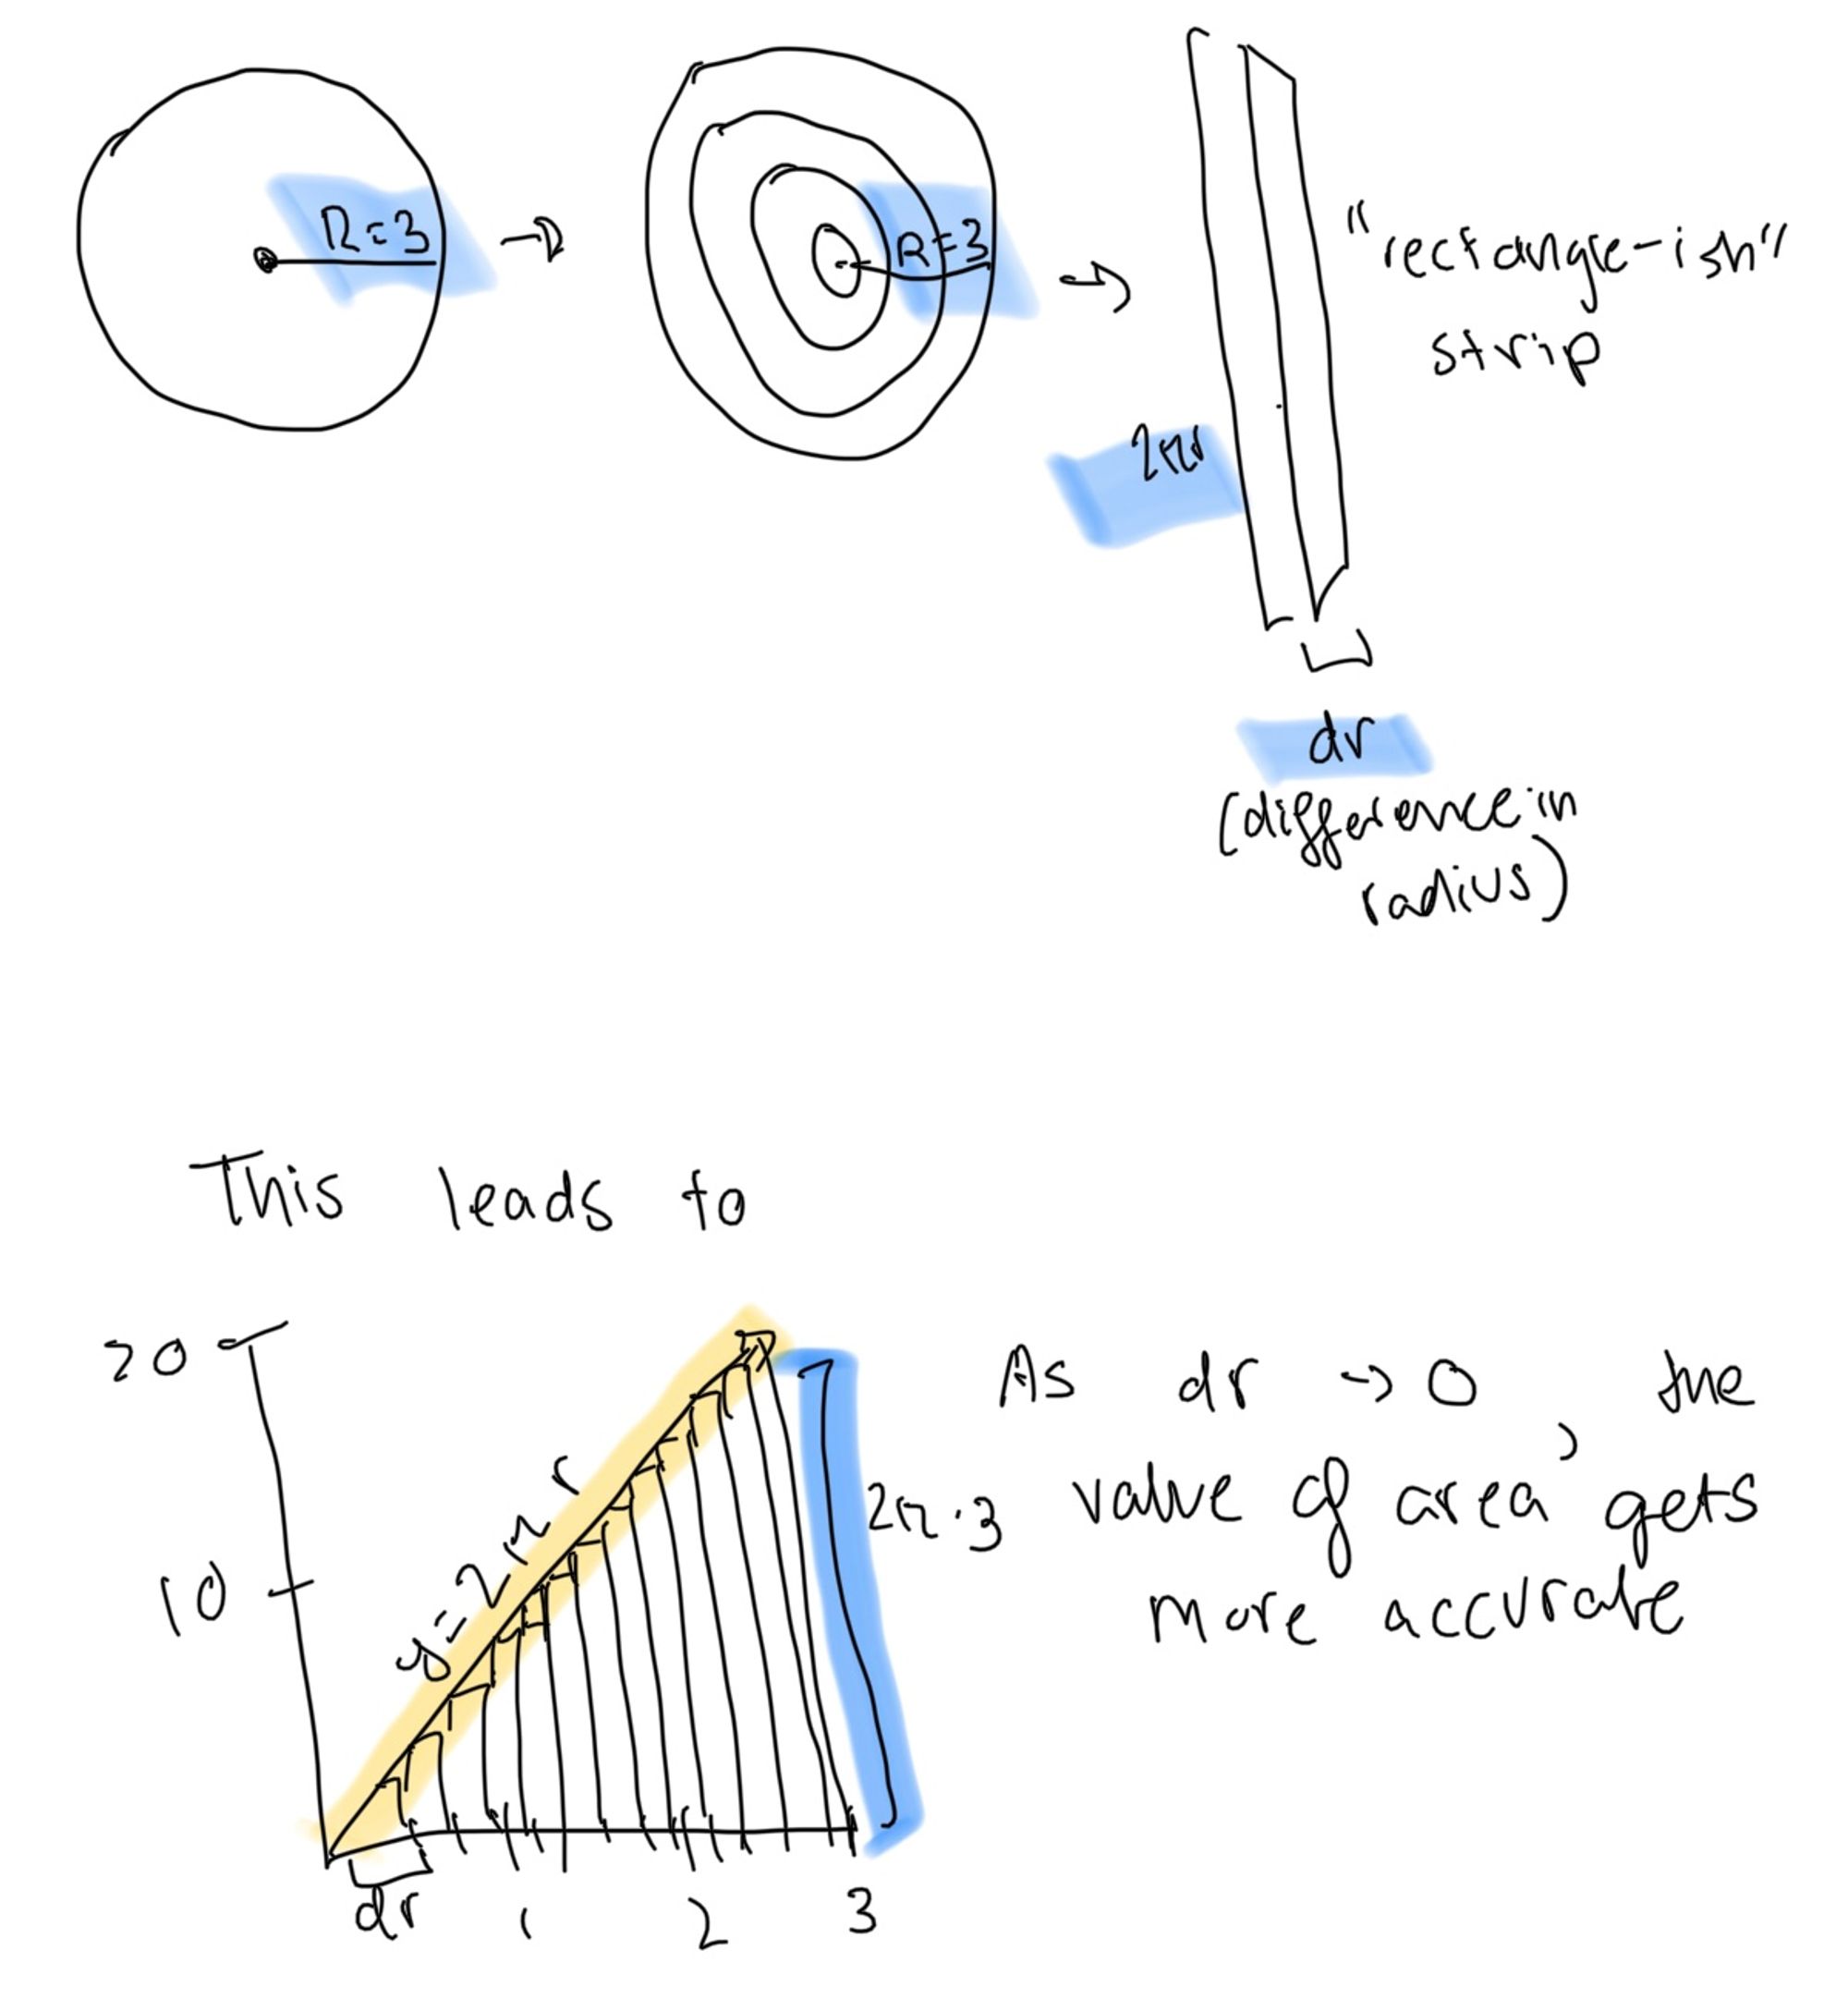 R=3
R=3
"rectangle-ish"
strip
2πr
dr
(difference in
radius)
This leads to
20
10
y=2πr
2π·3
dr
1
2
3
As dr → 0, the
value of area gets
more accurate